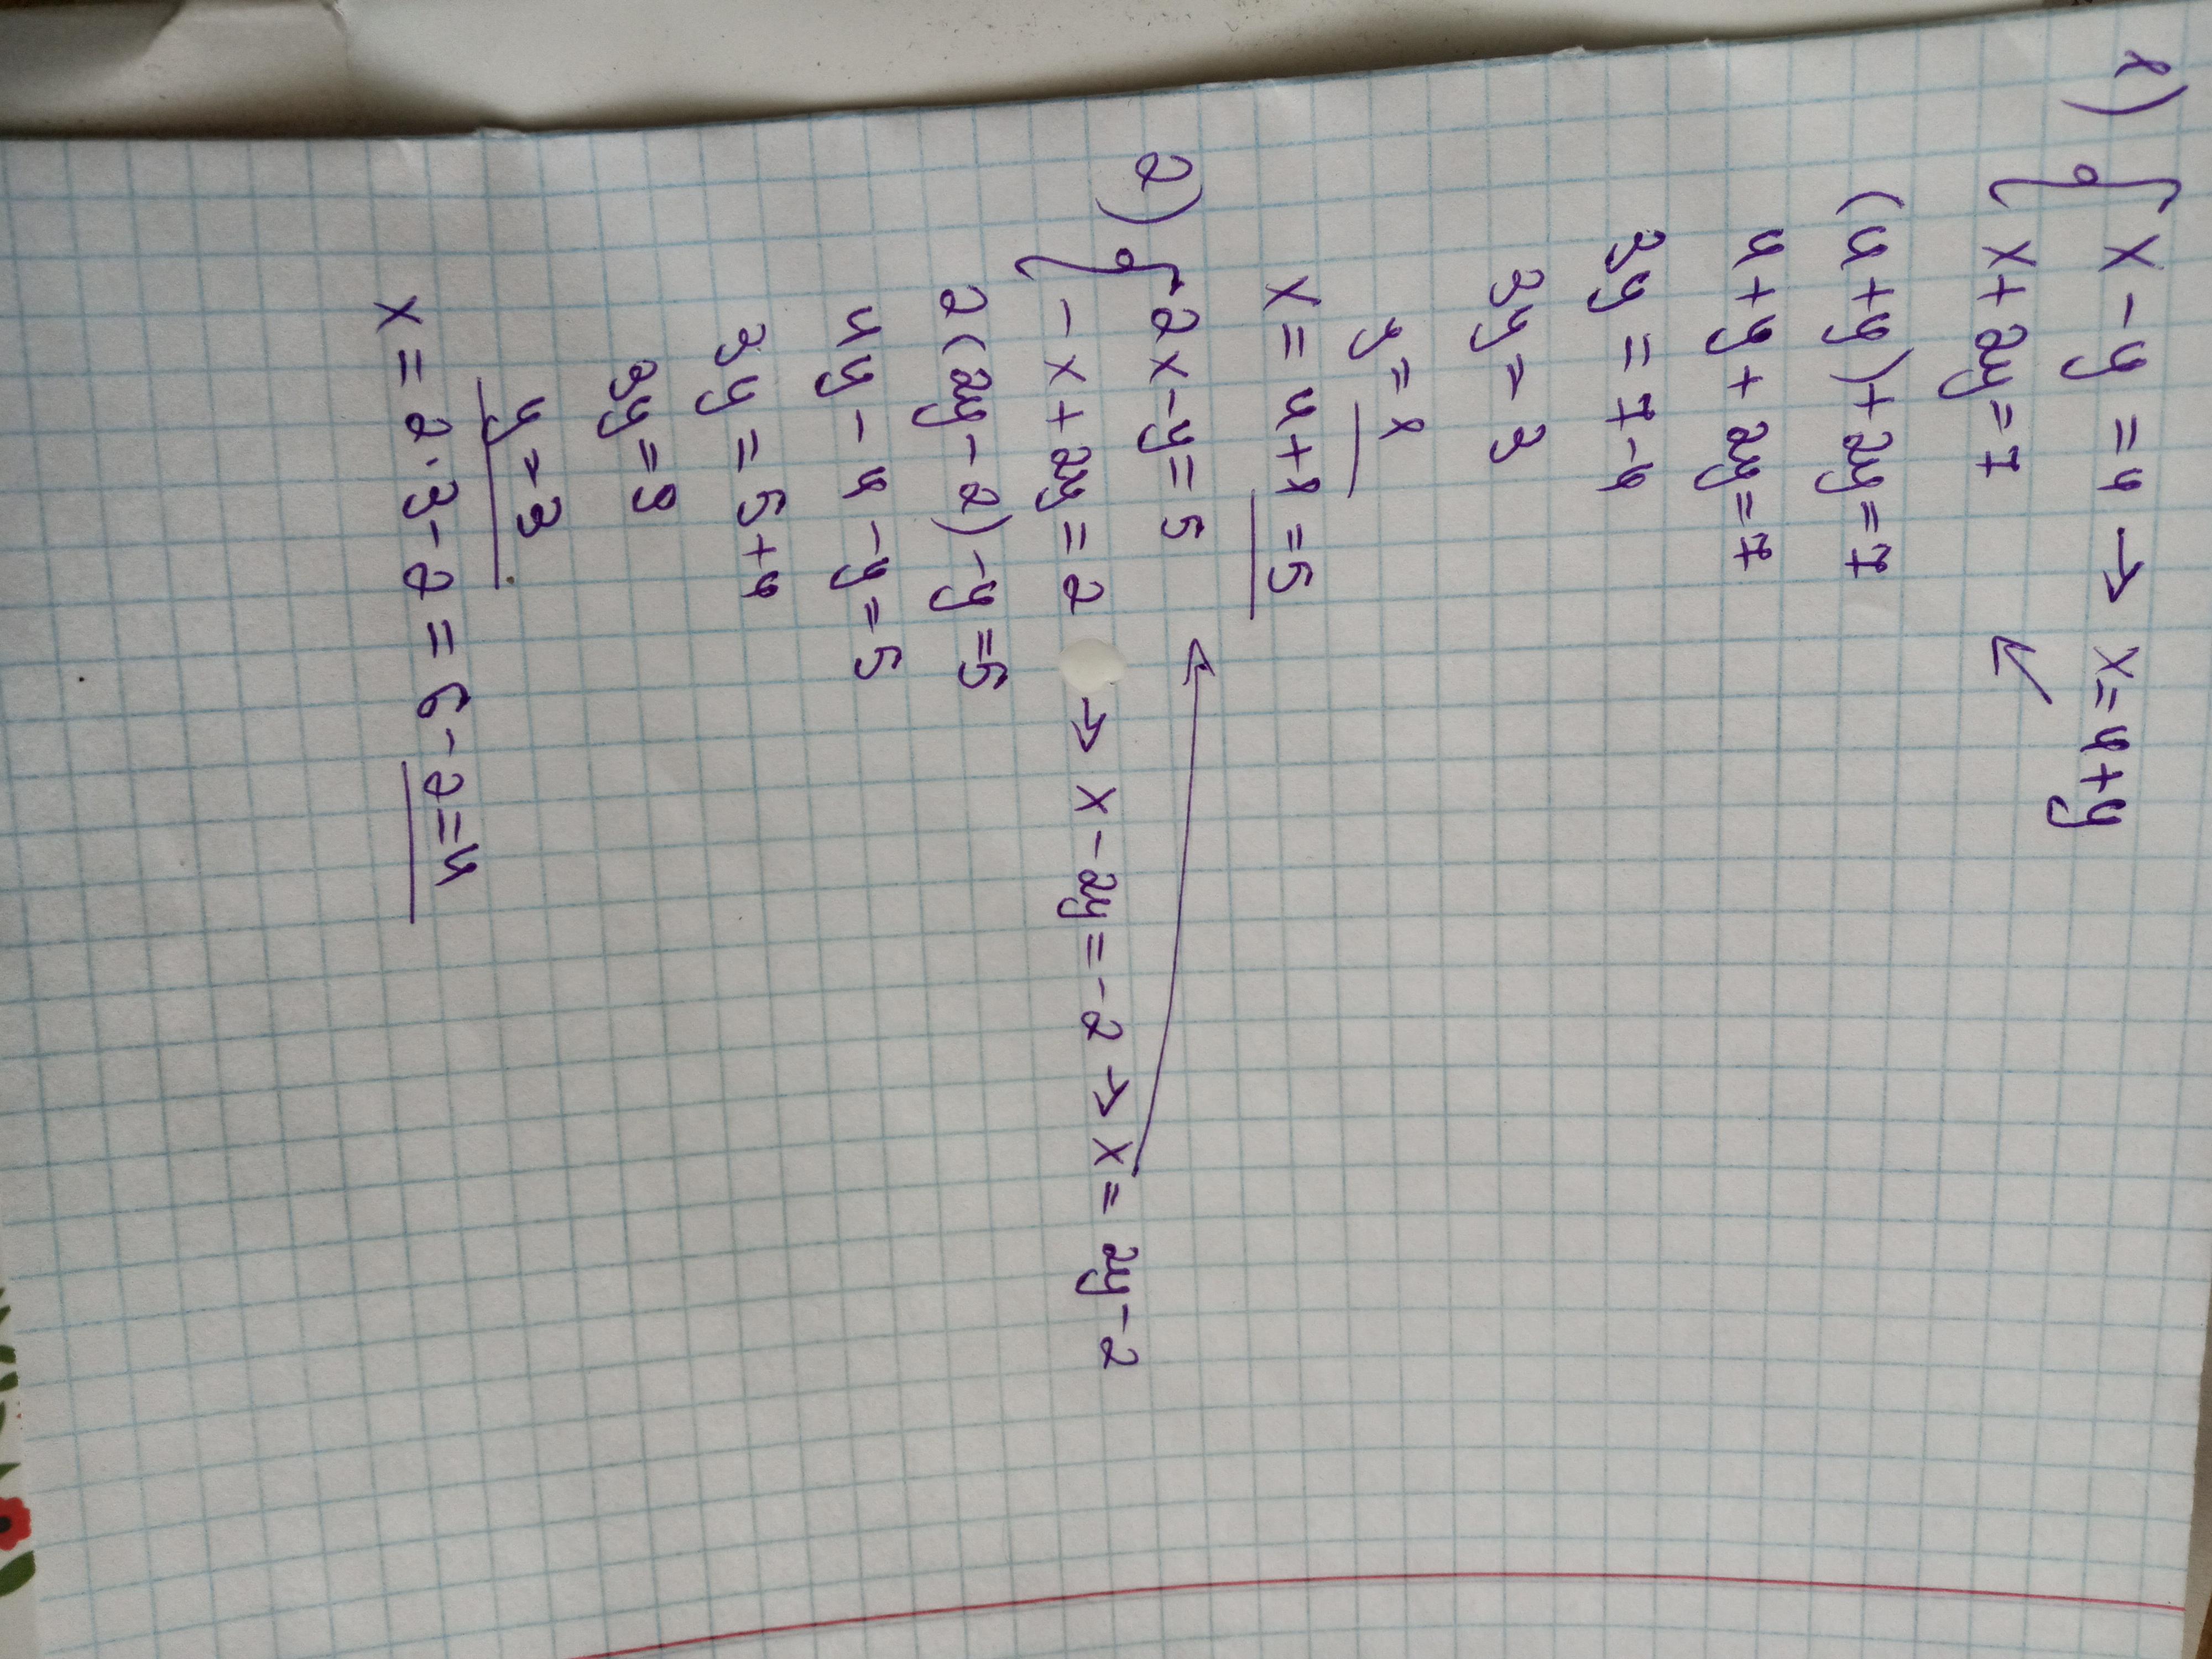 1) { x - y = 4 → x = 4 + y
x + 2y = 7 ↖
(4 + y) + 2y = 7
4 + y + 2y = 7
3y = 7 - 4
3y = 3
y = 1
x = 4 + 1 = 5
2) { 2x - y = 5
- x + 2y = 2 → x - 2y = -2 → x = 2y - 2
2(2y - 2) - y = 5
4y - 4 - y = 5
3y = 5 + 4
3y = 9
y = 3
x = 2·3 - 2 = 6 - 2 = 4